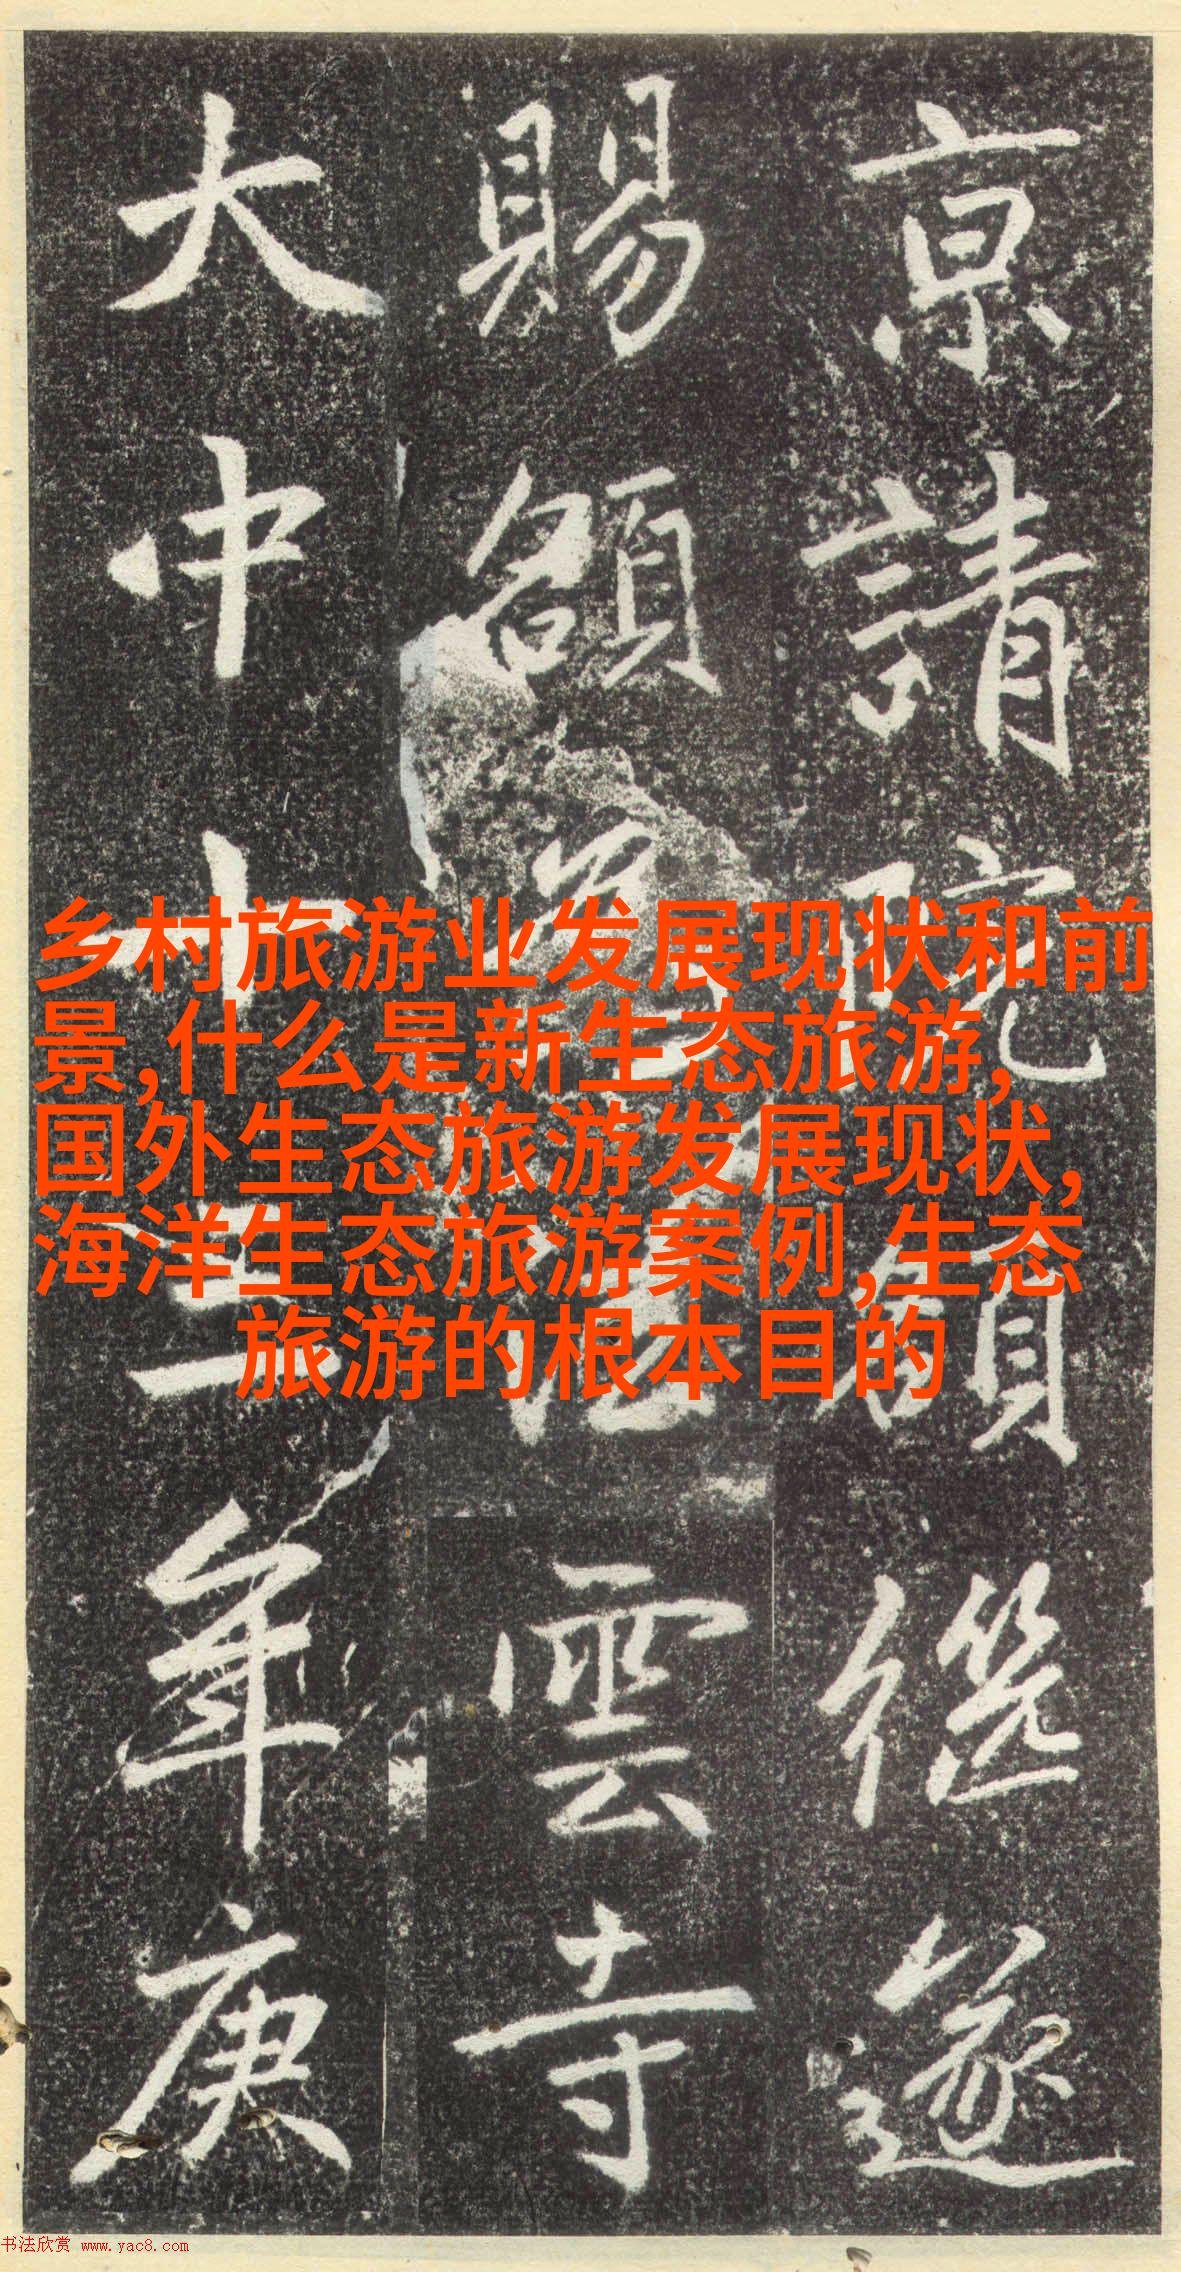 京請院額遂
賜額雲寺
大中年庚
乡村旅游业发展现状和前
景,什么是新生态旅游,
国外生态旅游发展现状,
海洋生态旅游案例,生态
旅游的根本目的
书法欣赏 www.yac8.com